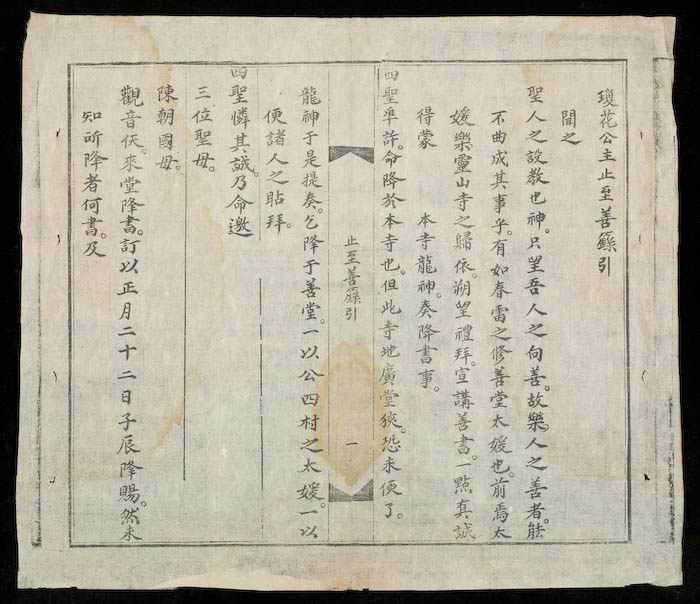 瓊花公主止至善籙引
聞之
聖人之設教也神。只望吾人之向善。故樂人之善者。能
不曲成其事乎。有如春雷之修善堂太媛也。前焉太
媛樂靈山寺之歸依。朔望禮拜。宣講善書。一點真誠
得蒙 本寺龍神。奏降書事。
四聖準許。命降於本寺也。但此寺地廣堂狹。恐未便了。
止至善籙引 一
龍神于是提奏。乞降于善堂。一以公四村之太媛。一以
便諸人之貼拜。
四聖憐其誠。乃命邀
三位聖母。
陳朝國母。
觀音佛。來堂降書。訂以正月二十二日子辰降賜。然未
知所降者何書。及